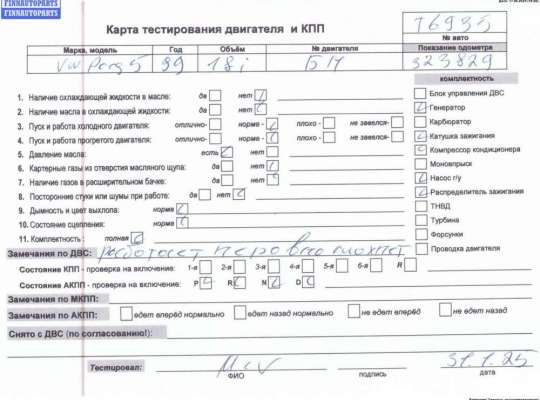 FINNAUTOPARTS
FINNAUTOPARTS
Карта тестирования двигателя и КПП
76935
№ авто
Марка, модель Год Объём № двигателя Показание одометра
99 1.8i БН 323829
комплектность
Блок управления ДВС
1. Наличие охлаждающей жидкости в масле: да нет Генератор
2. Наличие масла в охлаждающей жидкости: да нет Карбюратор
3. Пуск и работа холодного двигателя: отлично- норма - плохо - не завелся- Катушка зажигания
4. Пуск и работа прогретого двигателя: отлично- норма - плохо - не завелся- Компрессор кондиционера
5. Давление масла: есть нет Моновпрыск
6. Картерные газы из отверстия масляного щупа: да нет Насос г/у
7. Наличие газов в расширительном бачке: да нет Распределитель зажигания
8. Посторонние стуки или шумы при работе: да нет ТНВД
9. Дымность и цвет выхлопа: норма Турбина
10. Состояние сцепления: норма Форсунки
11. Комплектность: полная Проводка двигателя
Замечания по ДВС: работает неровно
Состояние КПП - проверка на включение: 1-я 2-я 3-я 4-я 5-я 6-я R
Состояние АКПП - проверка на включение: P R N D
Замечания по МКПП:
Замечания по АКПП: едет вперёд нормально едет назад нормально не едет вперёд не едет назад
Снято с ДВС (по согласованию!):
Тестировал: 31.1.25
ФИО подпись дата